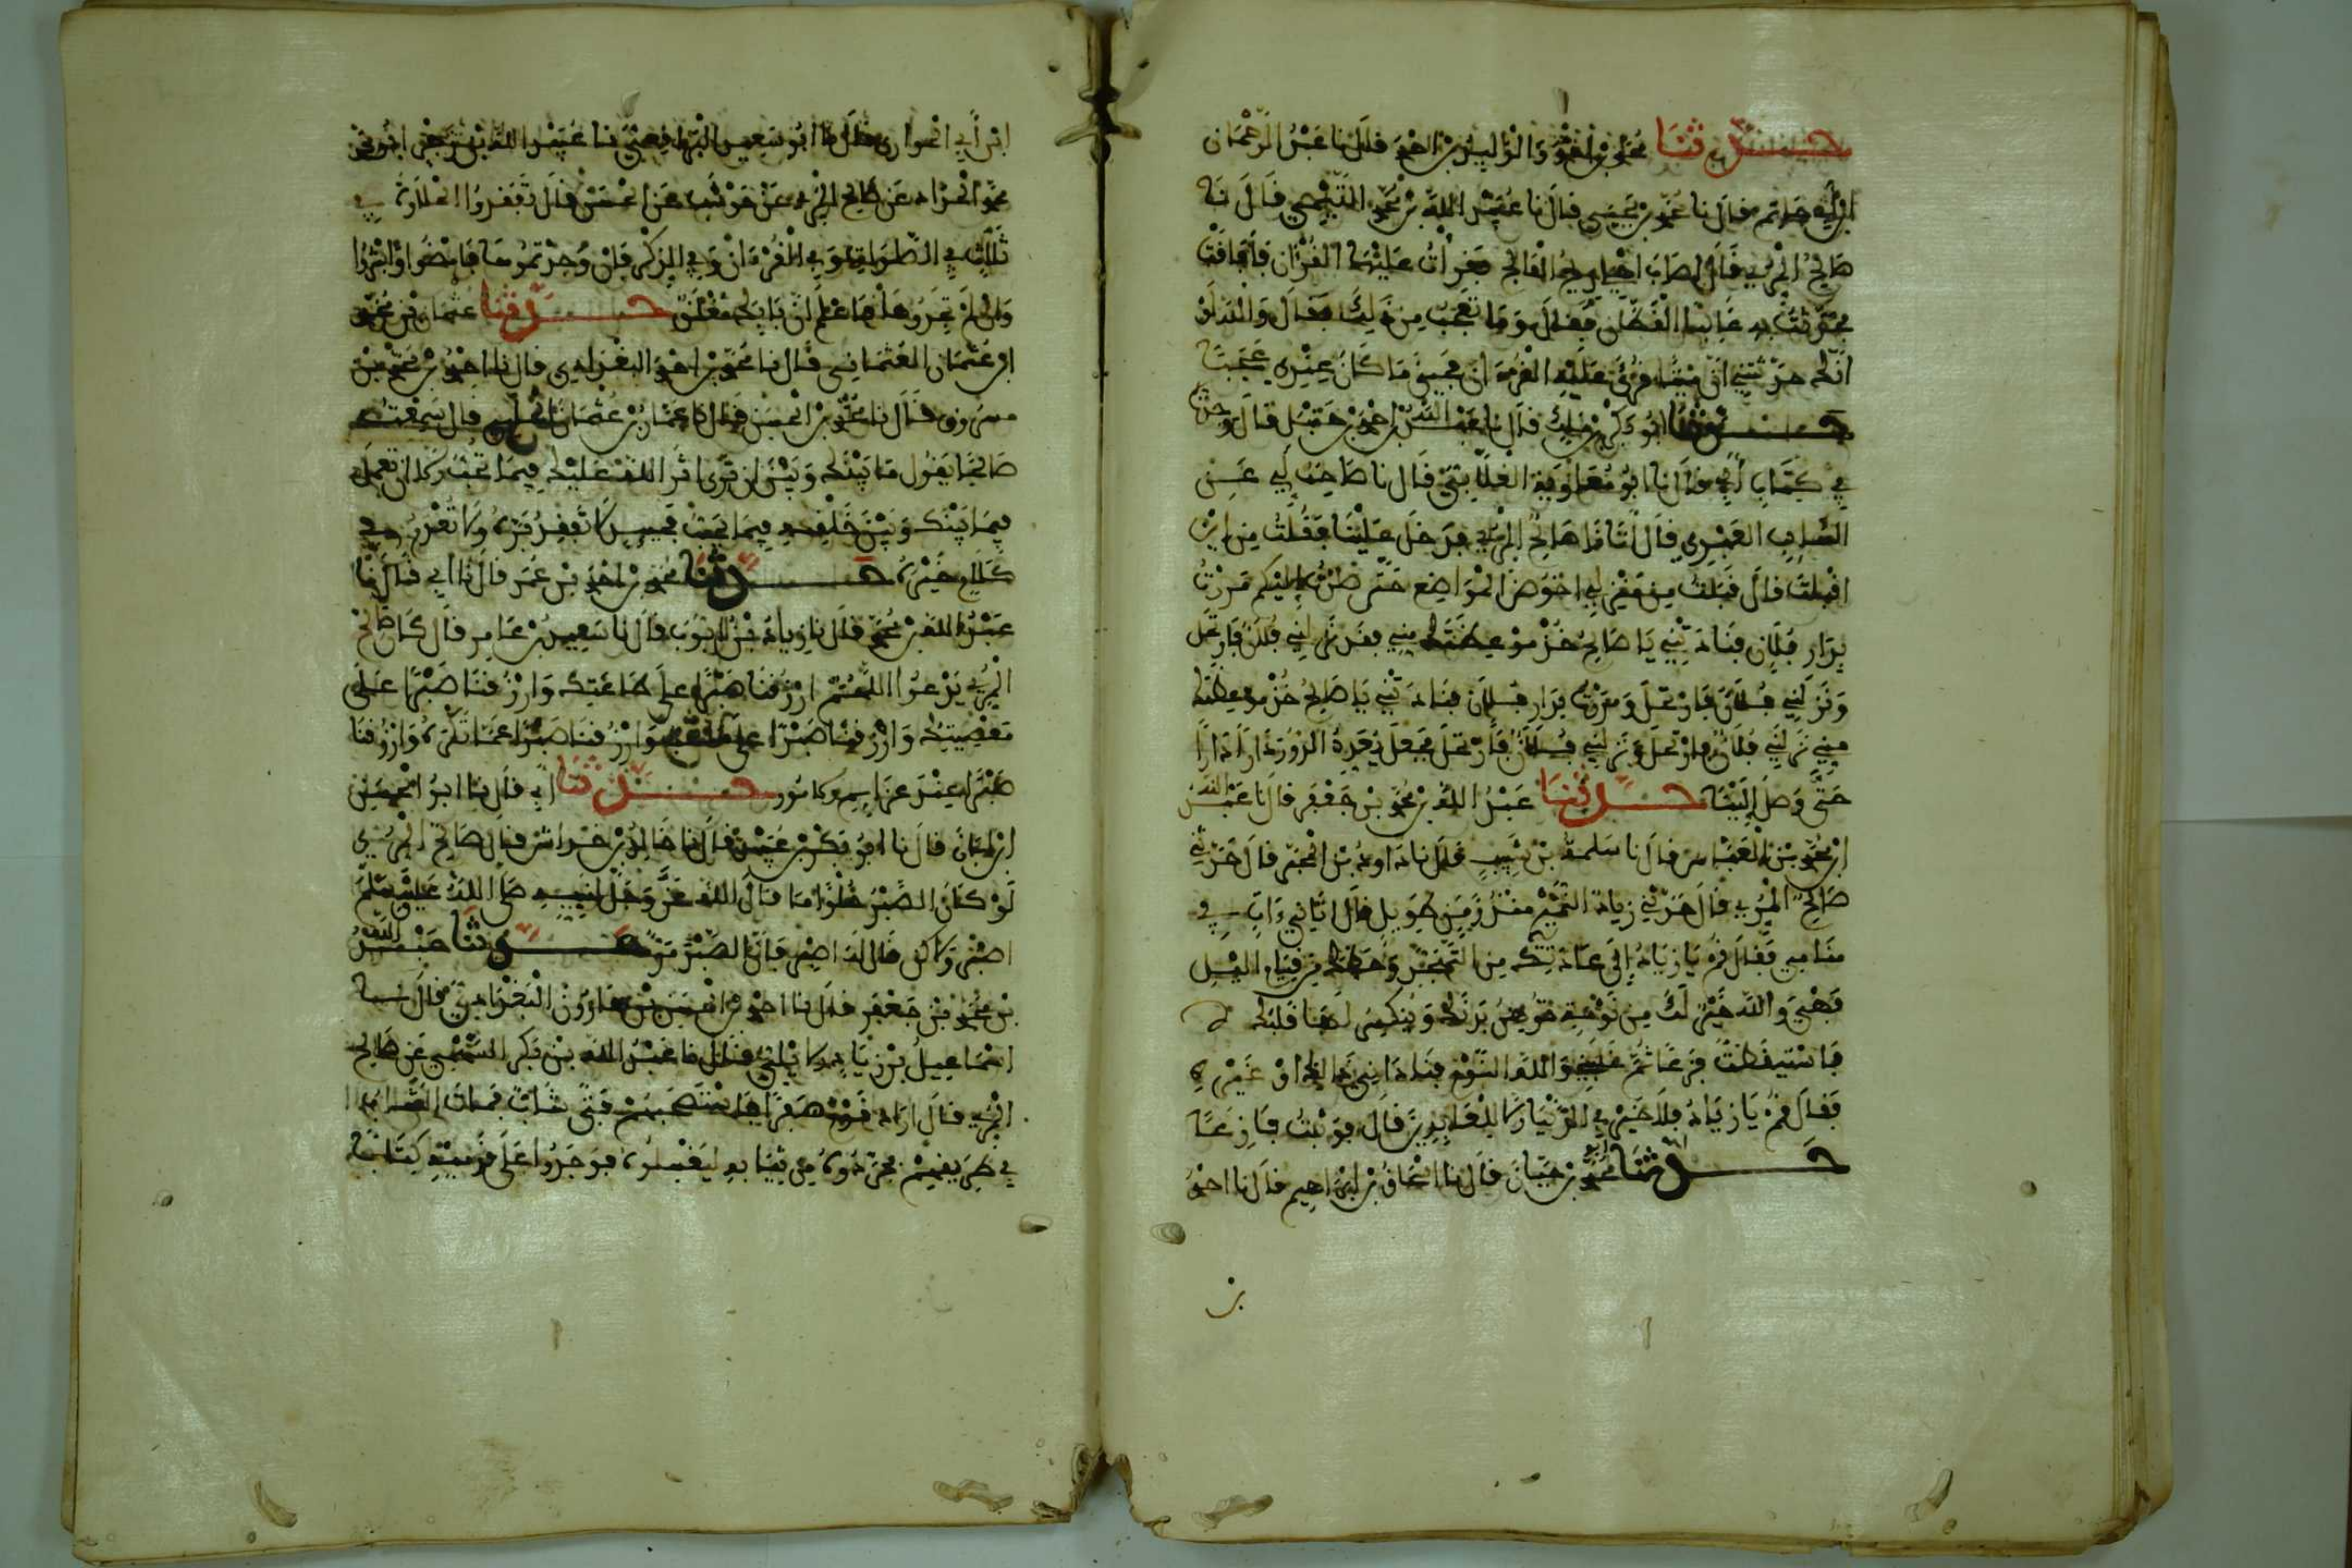 حدثنا محمد بن أحمد والوليد بن أحمد قالا نا عبد الرحمان
ابن أبي حاتم قال نا محمد بن يحيى قال نا عبيد الله بن محمد التيمي قال نا
صالح المري قال أصاب أهلي ريح الفالج فقرأت عليها القرءان فأفاقت
فحدثت به غالبا القطان فقال وما تعجب من ذلك فقال والله لو
أنك حدثتني أن ميتا قرئ عليه القرءان فحيي ما كان عندي عجبا
حدثنا أبو بكر بن ملك قال نا عبد الله بن أحمد بن حنبل قال وجدت
في كتاب أبي قال نا أبو معاوية الغلابي قال نا صاحب لي عن
السائب العبدي قال أتانا صالح المري فدخل علينا فقلت من أين
أقبلت قال قبلت من منزلي أخوض المواضع حتى صرت إليكم مررت
بدار فلان فنادتني يا صالح خذ موعظتك مني فقد نزلني فلان فارتحل
ونزلني فلان فارتحل ومررت بدار فلان فنادتني يا صالح خذ موعظتك
مني نزلني فلان فارتحل ونزلني فلان فارتحل فجعل يعدد الدور دارا دارا
حتى وصل إلينا حدثنا عبد الله بن محمد بن جعفر قال نا عبد الله
ابن محمد بن العباس قال نا سلمة بن شبيب قال نا داود بن المحبر قال حدثني
صالح المري قال حدثني زياد النميري منذ زمن طويل قال أتاني ءات في
منامي فقال قم يا زياد إلى عادتك من التهجد وحظك من قيام الليل
فهي والله خير لك من نومة توهن بدنك وينكسر لها قلبك
فاستيقظت فزعا ثم غلبني والله النوم فنادانى ذلك أو غيره
فقال قم يا زياد فلا خير في الدنيا إلا للعابدين قال فوثبت فازعا
حدثنا أبو محمد بن حيان قال نا إسحاق بن إبراهيم قال نا أحمد
بن
ابن أبي الحواري قال نا أبو سعيد البراقعي نا عبيد الله
عن صالح المري عن حوشب عن الحسن قال تفقدوا الحلاوة في
ثلاث في الصلوات وفي القرءان وفي الذكر فإن وجدتموها فامضوا وابشروا
وإن لم تجدوها فاعلم أن بابك مغلق حدثنا عثمان بن محمد
ابن عثمان العثماني قال نا محمد بن أحمد البغدادي قال نا أحمد بن محمد بن
مسروق قال نا محمد بن الحسن قال نا عثمان قال سمعت
صالحا يقول ما بينك وبين أن ترى أثر الله عليك فيما تحب إلا أن تعمل
فيما بينك وبين خلقه فيما يحب فحينئذ لا تفقد بره ولا تعدم في
كل أمر خيره حدثنا محمد بن أحمد بن عمر قال نا أبي قال نا
عبد الله بن محمد قال نا زياد بن أيوب قال نا سعيد بن عامر قال كان صالح
المري يدعو اللهم ارزقنا صبرا على طاعتك وارزقنا صبرا على
معصيتك وارزقنا صبرا على ما تحب وارزقنا صبرا عما تكره وارزقنا
صبرا عند عزائم الأمور حدثنا أبي قال نا أبو الحسن
ابن أبان قال نا أبو بكر بن عبيد قال نا خالد بن خداش قال صالح المري
لو كان الصبر حلوا ما قال الله عز وجل لنبيه صلى الله عليه وسلم
اصبر ولاكن قال له اصبر فإن الصبر مر حدثنا عبد الله
بن محمد بن جعفر قال نا أحمد بن الحسين بن هارون البغدادي قال نا
إسماعيل بن زياد الأيلي قال نا عبد الله بن بكر السهمي عن صالح
المري قال أراد قوم سفرا فاستصحبهم فتى شاب فمات الشاب
في طريقهم فجردوه من ثيابه ليغسلوه فوجدوا على قدميه كتابة